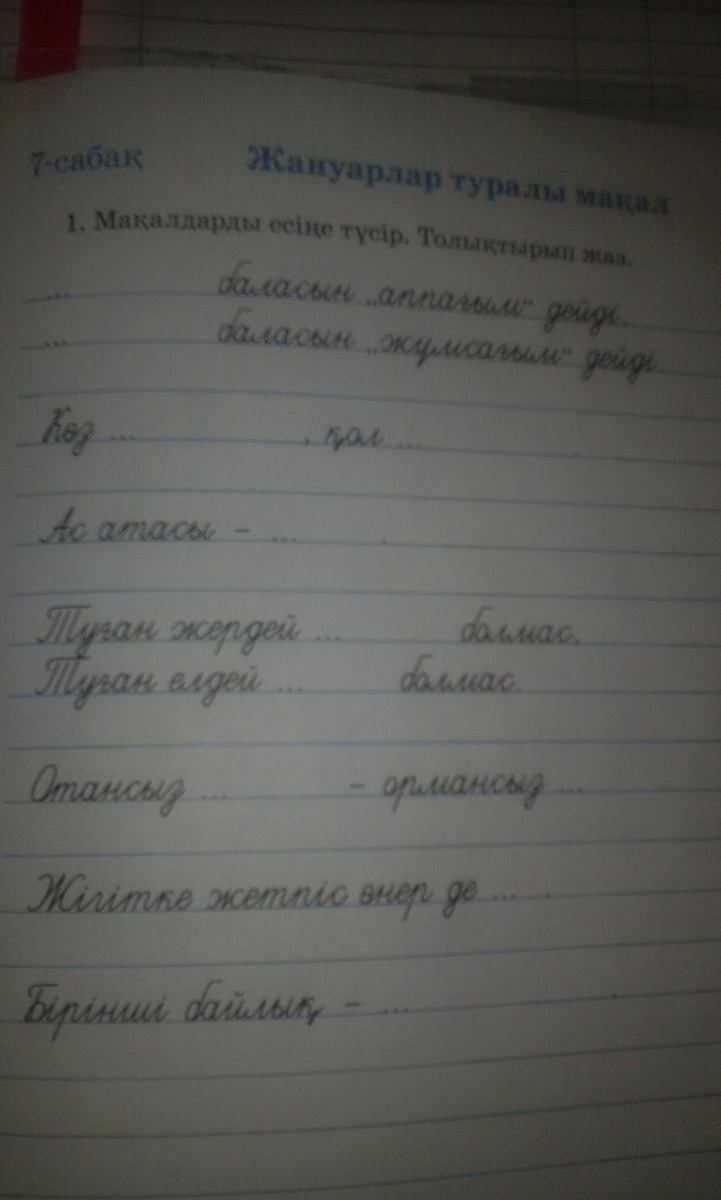 7-сабақ Жануарлар туралы мақал
1. Мақалдарды есіңе түсір. Толықтырып жаз.
... баласын „аппағым“ дейді,
... баласын „жұмсағым“ дейді.
Көз ... , қол ...
Ас атасы – ... .
Туған жердей ... болмас,
Туған елдей ... болмас.
Отансыз ... – ормансыз ...
Жігітке жетпіс өнер де ... .
Бірінші байлық – ... .